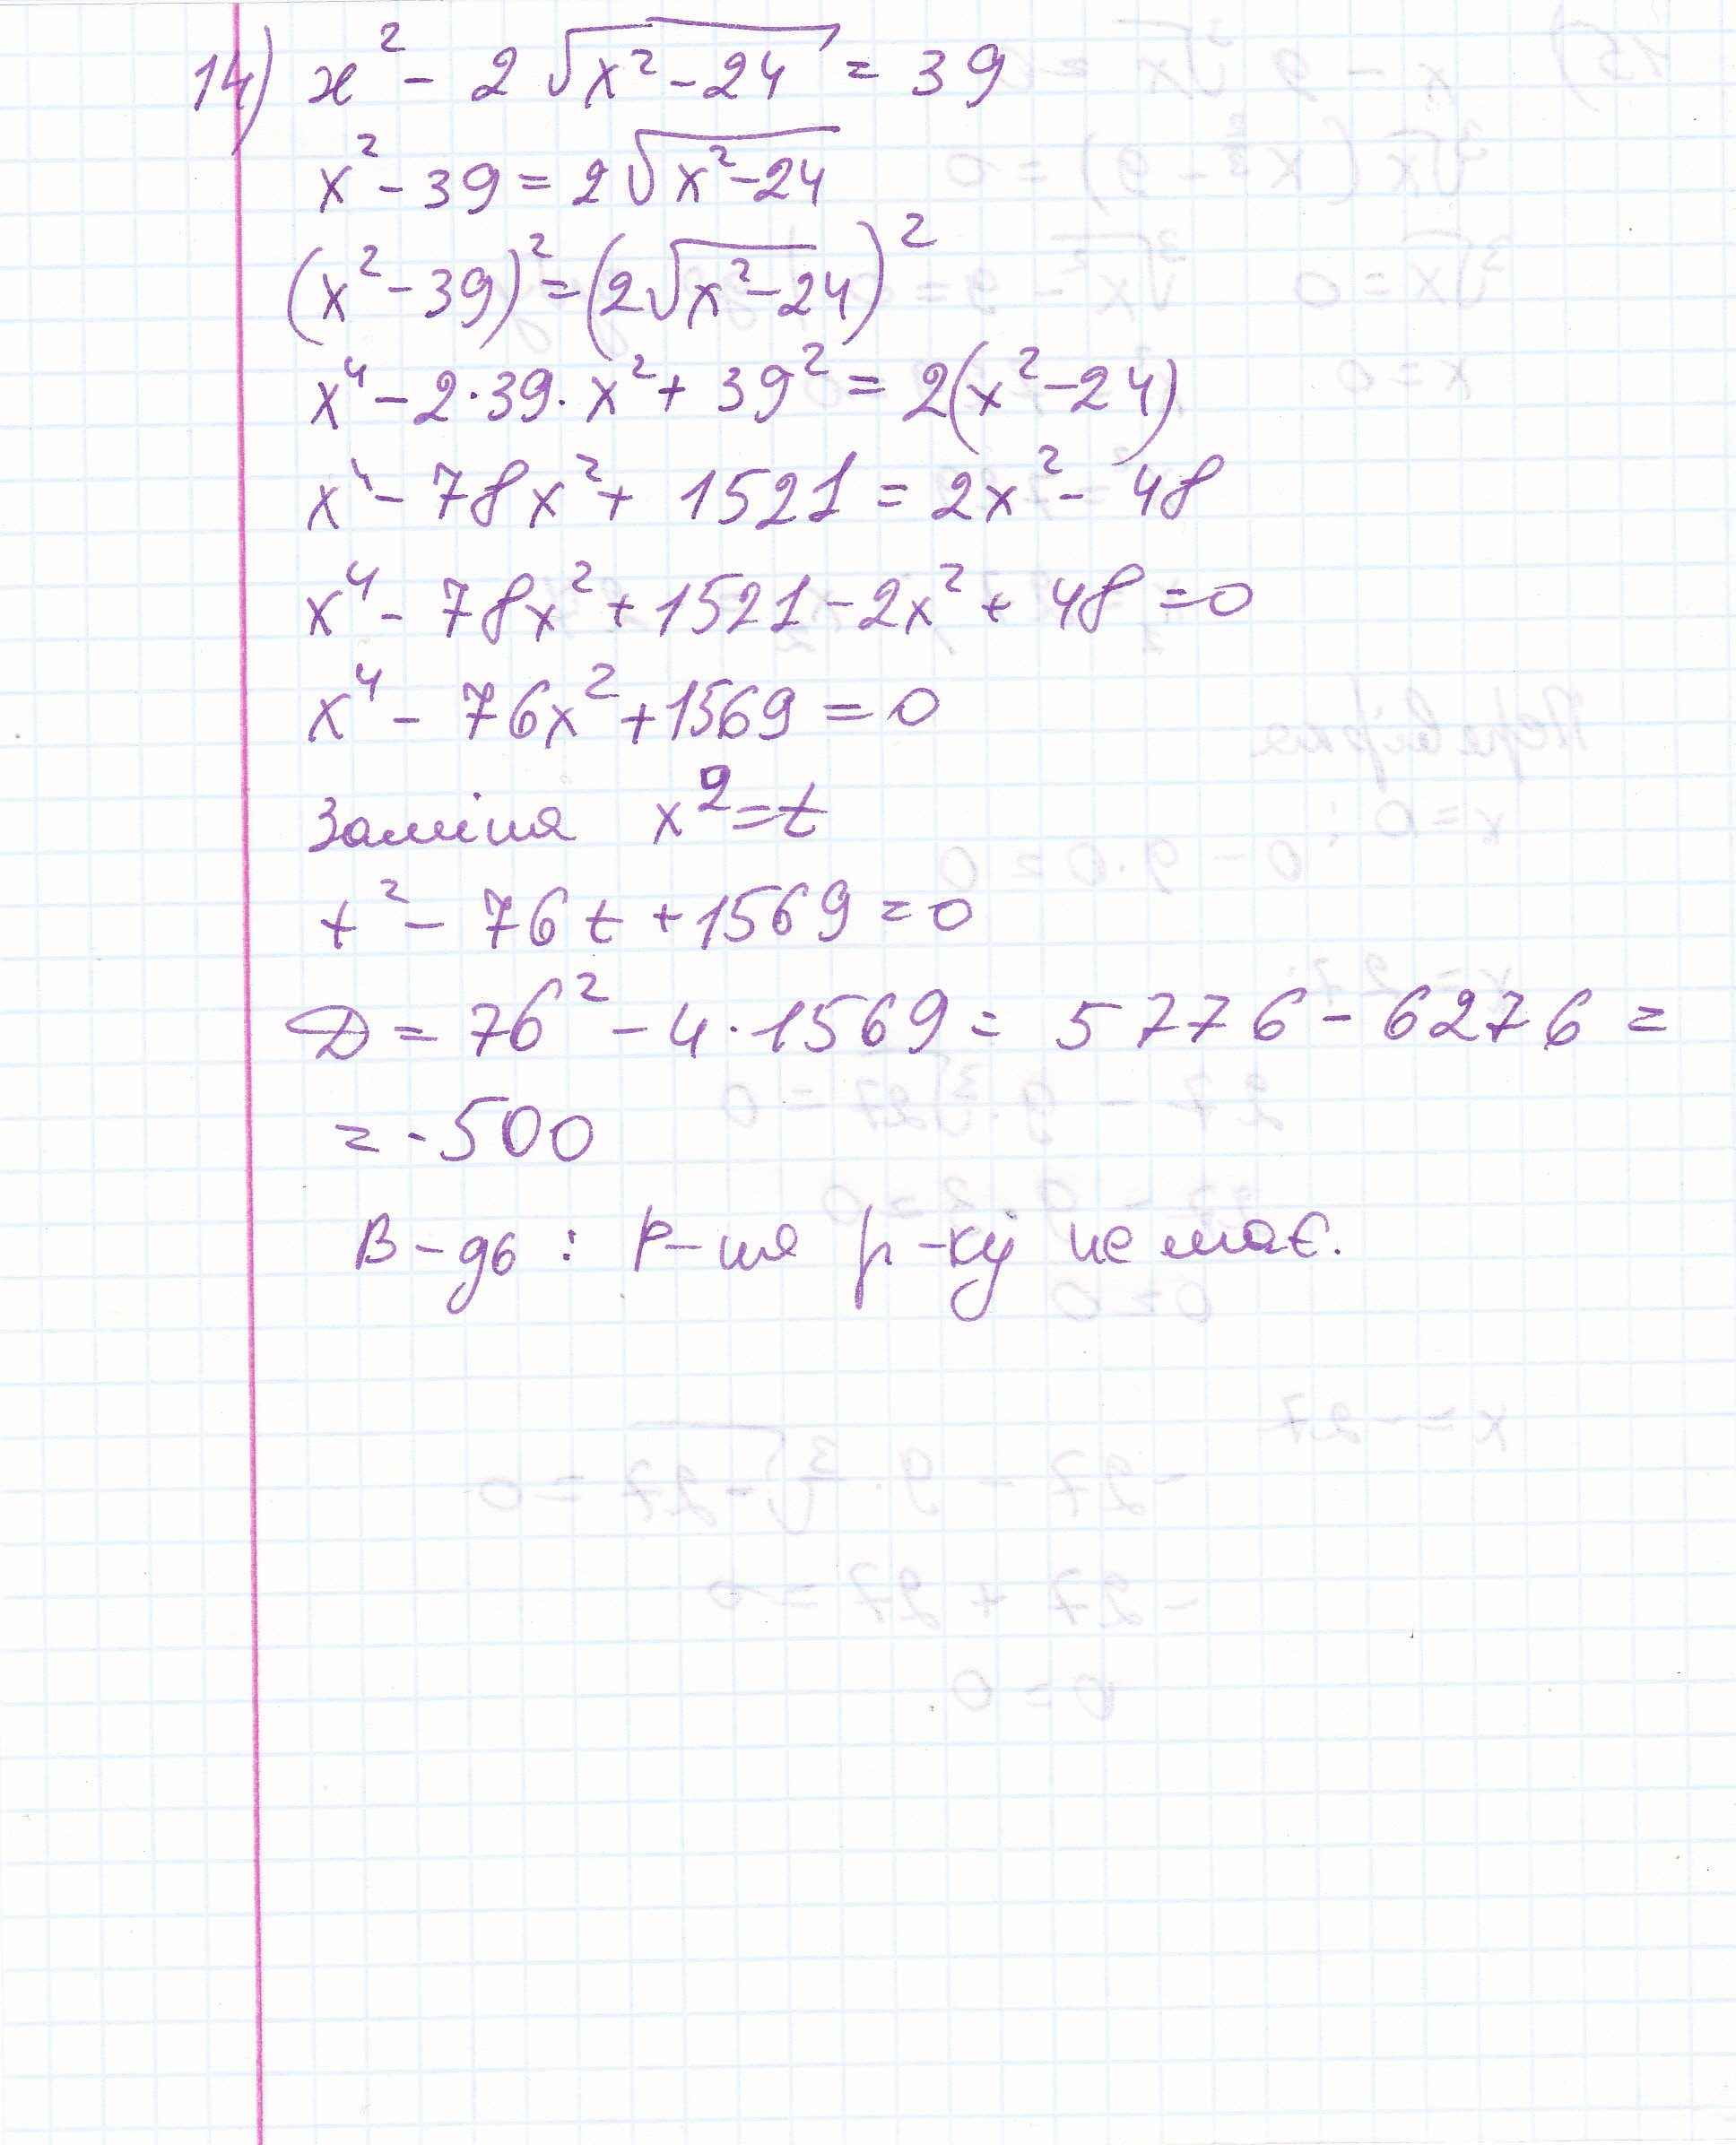 14) x² - 2√(x² - 24) = 39
x² - 39 = 2√(x² - 24)
(x² - 39)² = (2√(x² - 24))²
x⁴ - 2·39·x² + 39² = 2(x² - 24)
x⁴ - 78x² + 1521 = 2x² - 48
x⁴ - 78x² + 1521 - 2x² + 48 = 0
x⁴ - 76x² + 1569 = 0
Заміна x² = t
t² - 76t + 1569 = 0
D = 76² - 4·1569 = 5776 - 6276 =
= -500
В-дь: Р-ня р-кy не має.